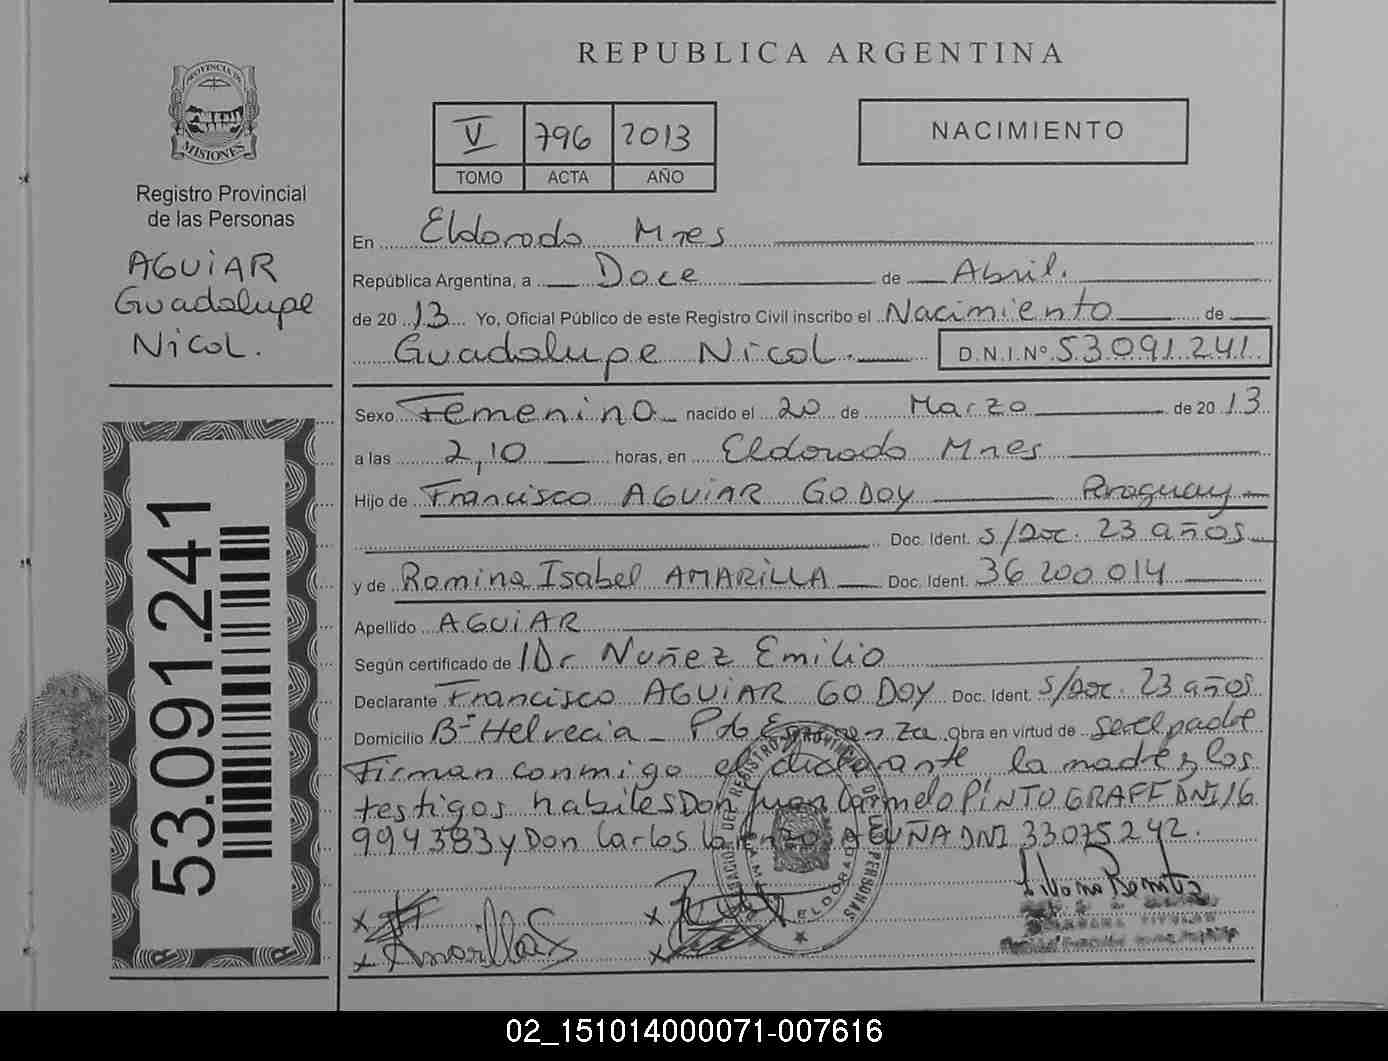 REPUBLICA ARGENTINA
V 796 2013
TOMO ACTA AÑO
NACIMIENTO
PROVINCIA DE
MISIONES
Registro Provincial
de las Personas
AGUIAR
Guadalupe
Nicol.
53.091.241
En Eldorado Mnes
República Argentina, a Doce de Abril.
de 20 13 Yo, Oficial Público de este Registro Civil inscribo el Nacimiento de
Guadalupe Nicol. D.N.I.Nº 53091241
Sexo Femenino nacido el 20 de Marzo de 20 13
a las 2,10 horas, en Eldorado Mnes
Hijo de Francisco AGUIAR GODOY Paraguay
Doc. Ident. s/Doc. 23 años
y de Romina Isabel AMARILLA Doc. Ident. 36 200 014
Apellido AGUIAR
Según certificado de Dr Nuñez Emilio
Declarante Francisco AGUIAR GODOY Doc. Ident. s/Doc. 23 años
Domicilio Bº Helvecia - Pto Esperanza Obra en virtud de ser el padre
Firman conmigo el declarante la madre y los
testigos habiles Don Juan Carmelo PINTO GRAFF DNI 16
994383 y Don Carlos Lorenzo ACUÑA DNI 33075242.
Amarilla
Liliana Benitez
02_151014000071-007616